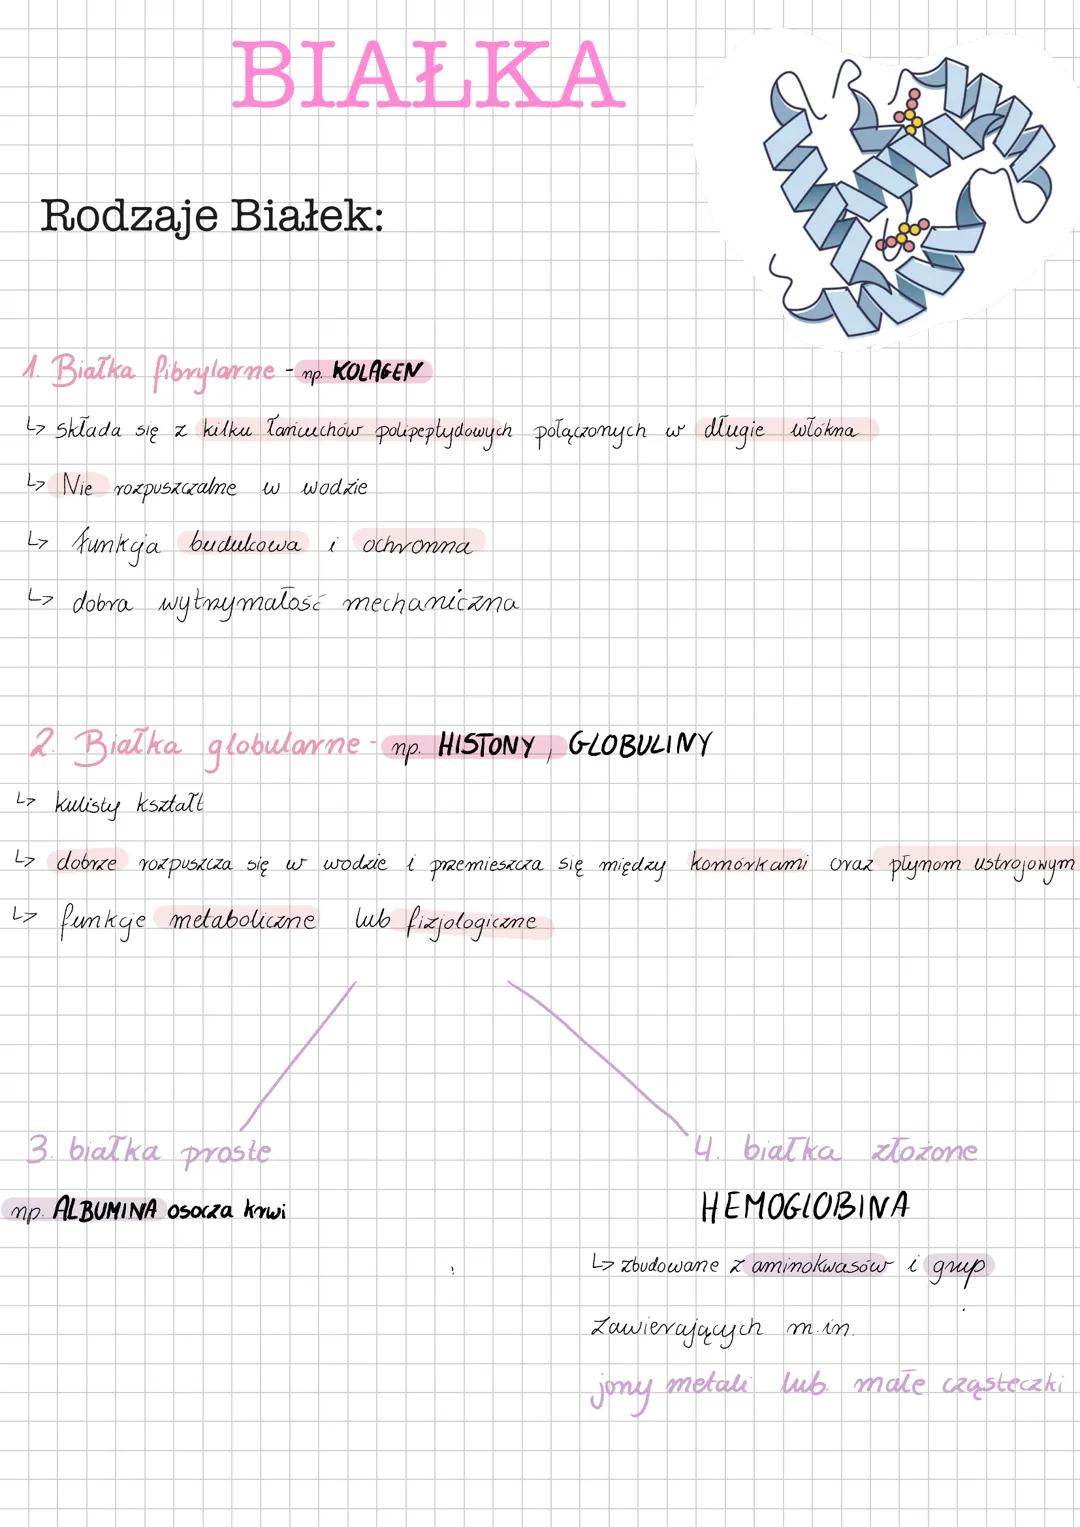 BIAŁKA
Rodzaje Białek:
1. Białka fibrylarne - np. KOLAGEN
↳ składa się z kilku łańcuchów polipeptydowych połączonych w długie włókna
↳ Nie rozpuszczalne w wodzie
↳ funkcja budulcowa i ochronna
↳ dobra wytrzymałość mechaniczna
2. Białka globularne - np. HISTONY, GLOBULINY
↳ kulisty kształt
↳ dobrze rozpuszcza się w wodzie i przemieszcza się między komórkami oraz płynom ustrojowym
↳ funkcje metaboliczne lub fizjologiczne
3. białka proste
4. białka złożone
np. ALBUMINA osocza krwi
HEMOGLOBINA
↳ zbudowane z aminokwasów i grup
zawierających m.in.
jony metali lub małe cząsteczki